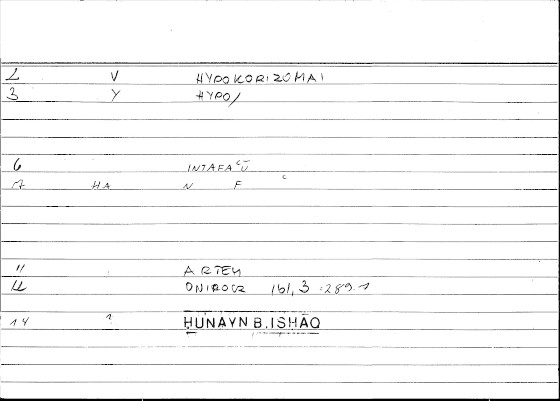 2 V HYPOKORIZOMAI
3 Y HYPO/
6 INTAFAʿŪ
7 HA N F ʿ
11 ARTEM
12 ONIROCR 161,3 :289.1
14 ? HUNAYN B. ISHĀQ